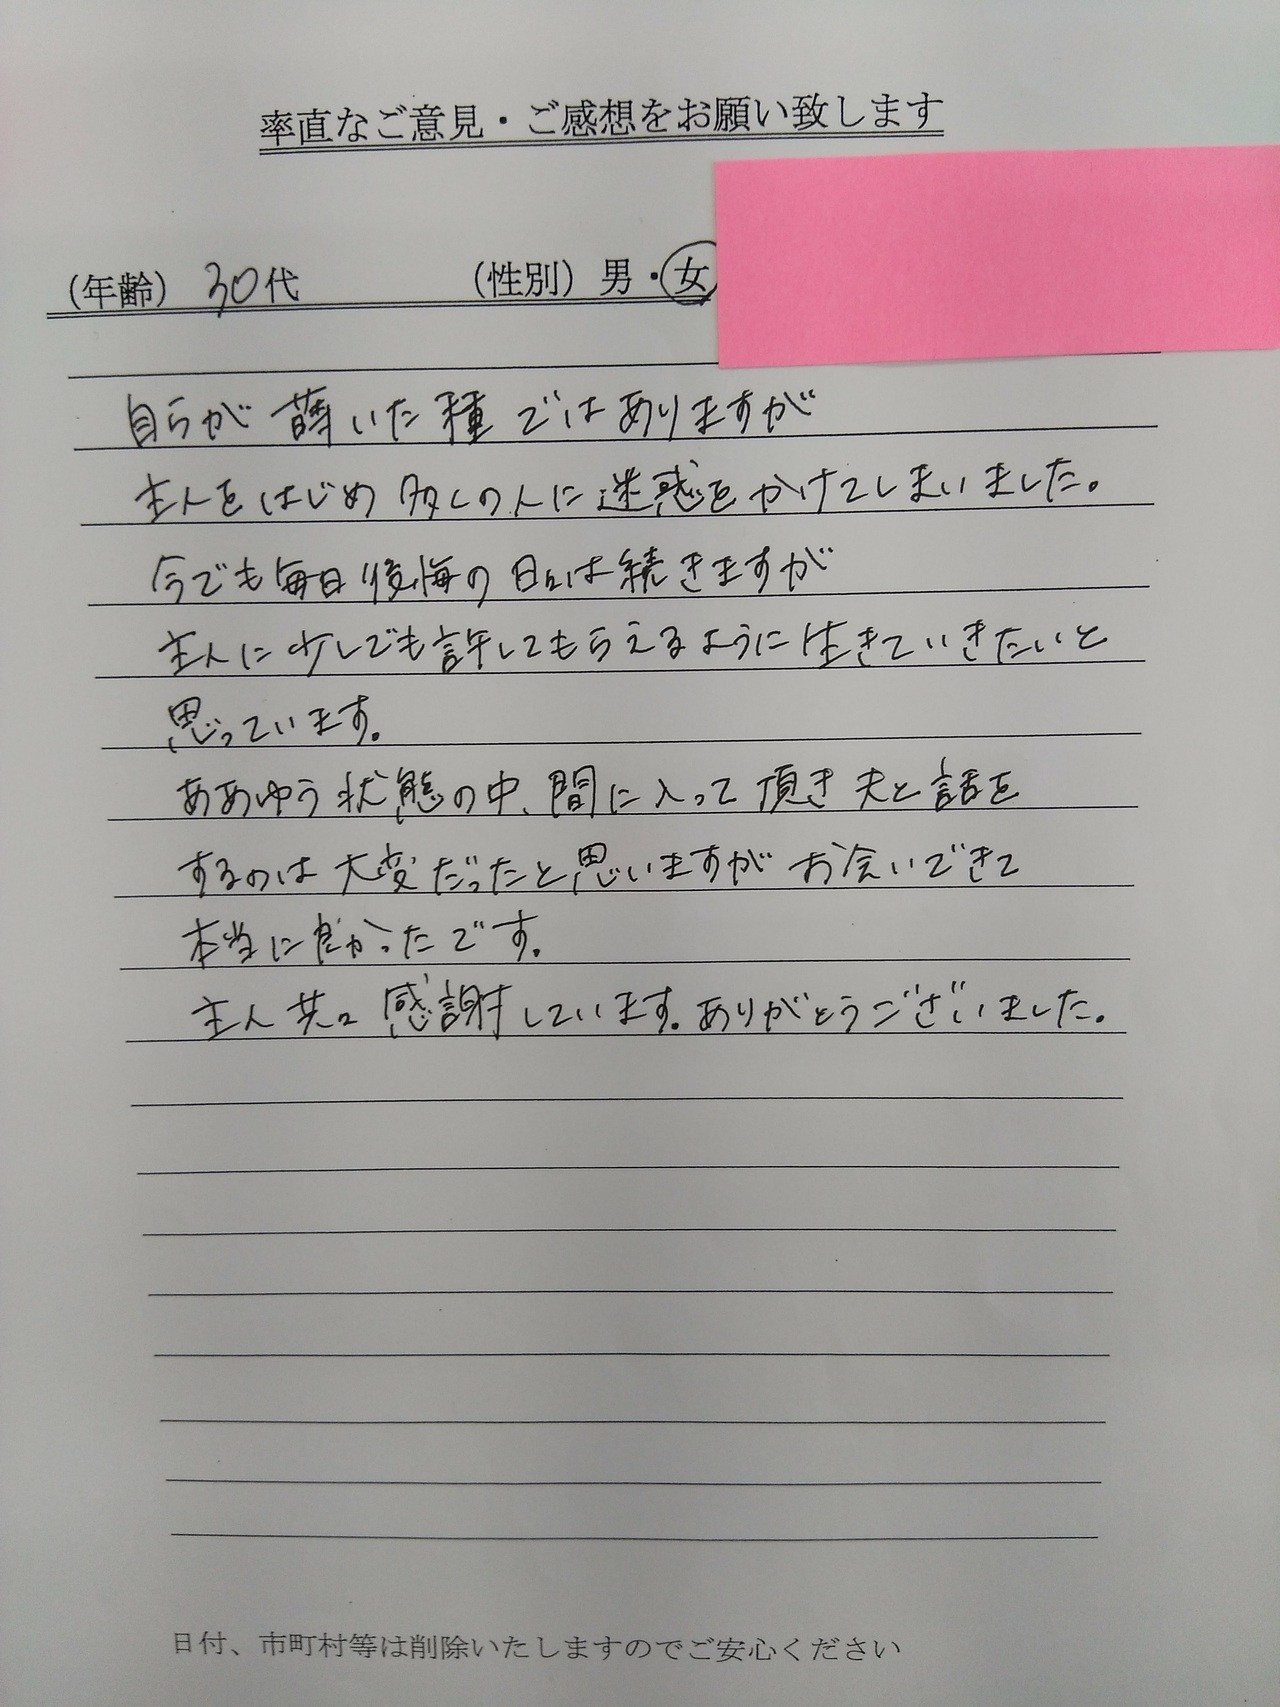 率直なご意見・ご感想をお願い致します
（年齢）30代　（性別）男・女
自らが蒔いた種ではありますが
主人をはじめ多くの人に迷惑をかけてしまいました。
今でも毎日後悔の日々は続きますが
主人に少しでも許してもらえるように生きていきたいと
思っています。
ああゆう状態の中、間に入って頂き夫と話を
するのは大変だったと思いますがお会いできて
本当に良かったです。
主人共々感謝しています。ありがとうございました。
日付、市町村等は削除いたしますのでご安心ください